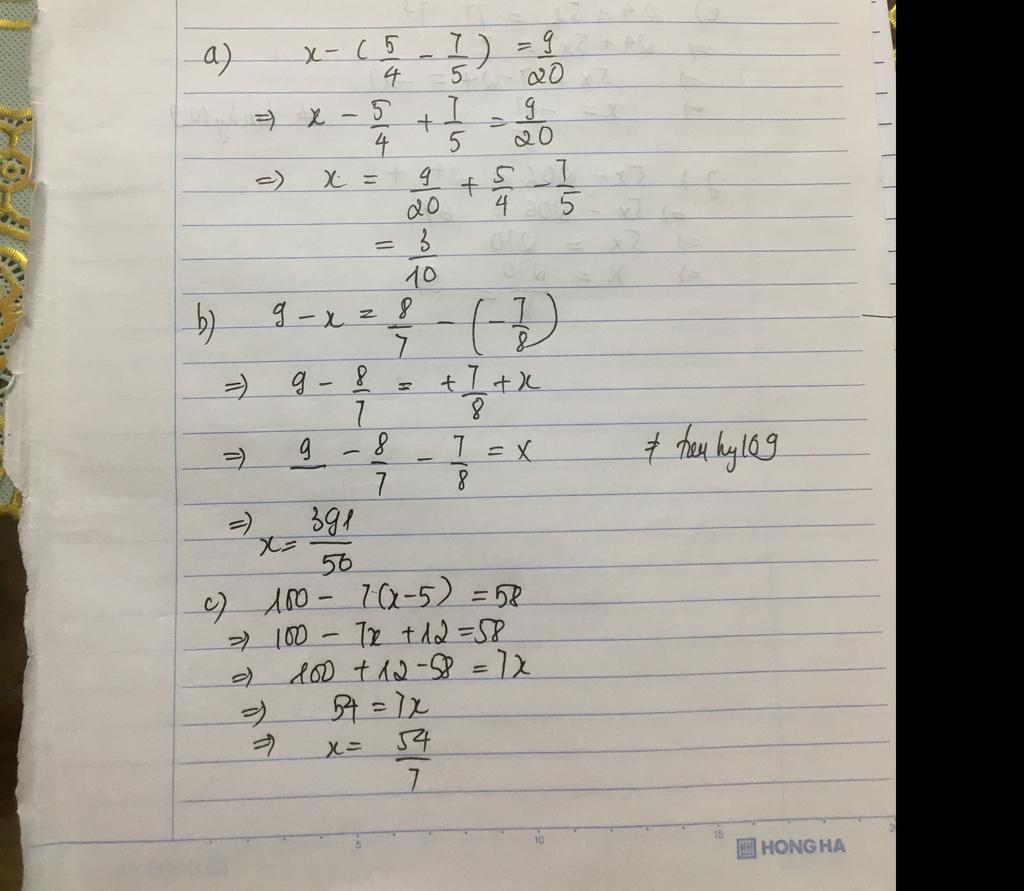 a) x - (5/4 - 7/5) = 9/20
=> x - 5/4 + 7/5 = 9/20
=> x = 9/20 + 5/4 - 7/5
= 3/10
b) 9 - x = 8/7 - (-7/8)
=> 9 - 8/7 = +7/8 + x
=> 9 - 8/7 - 7/8 = x
=> x = 391/56
c) 100 - 7(x-5) = 58
=> 100 - 7x + 12 = 58
=> 100 + 12 - 58 = 7x
=> 54 = 7x
=> x = 54/7
5 10 15
HONG HA